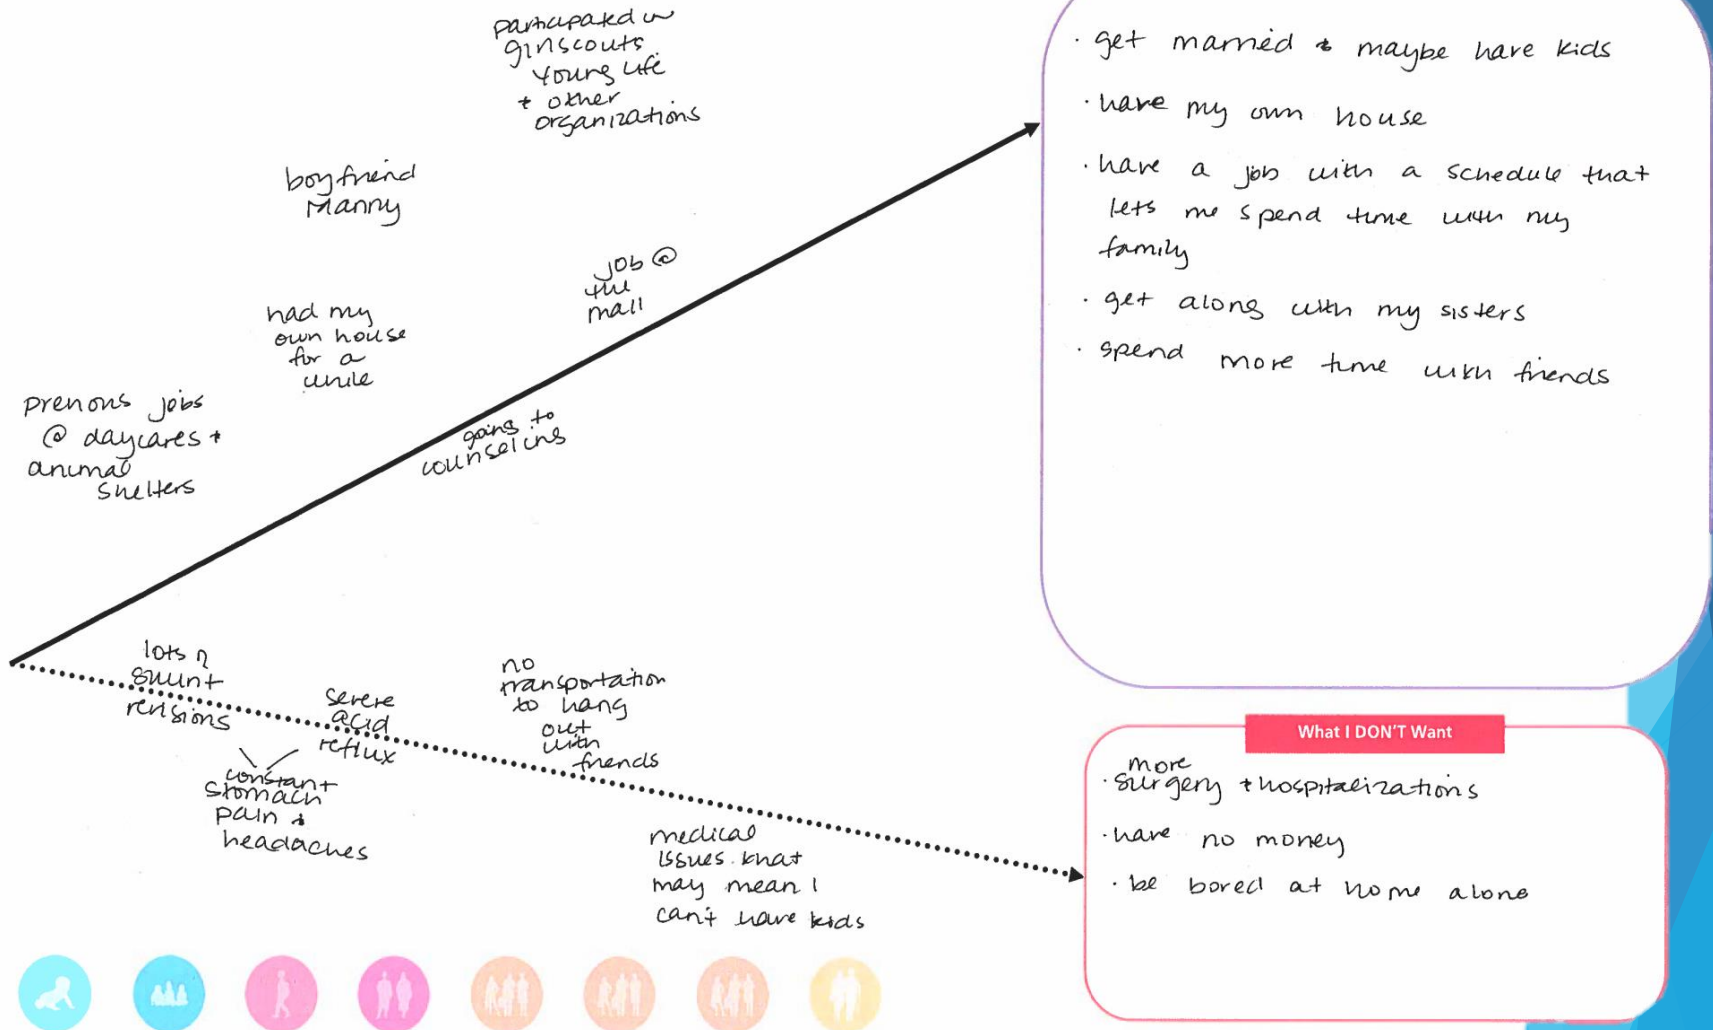 participated in
girlscouts
Young Life
+ other
organizations
boyfriend
Manny
job @
the
mall
had my
own house
for a
while
previous jobs
@ daycares +
animal
shelters
going to
counseling
· get married + maybe have kids
· have my own house
· have a job with a schedule that
lets me spend time with my
family
· get along with my sisters
· spend more time with friends
lots of
shunt
revisions
severe
acid
reflux
constant
stomach
pain +
headaches
no
transportation
to hang
out
with
friends
medical
issues that
may mean I
can't have kids
What I DON'T Want
more
· surgery + hospitalizations
· have no money
· be bored at home alone